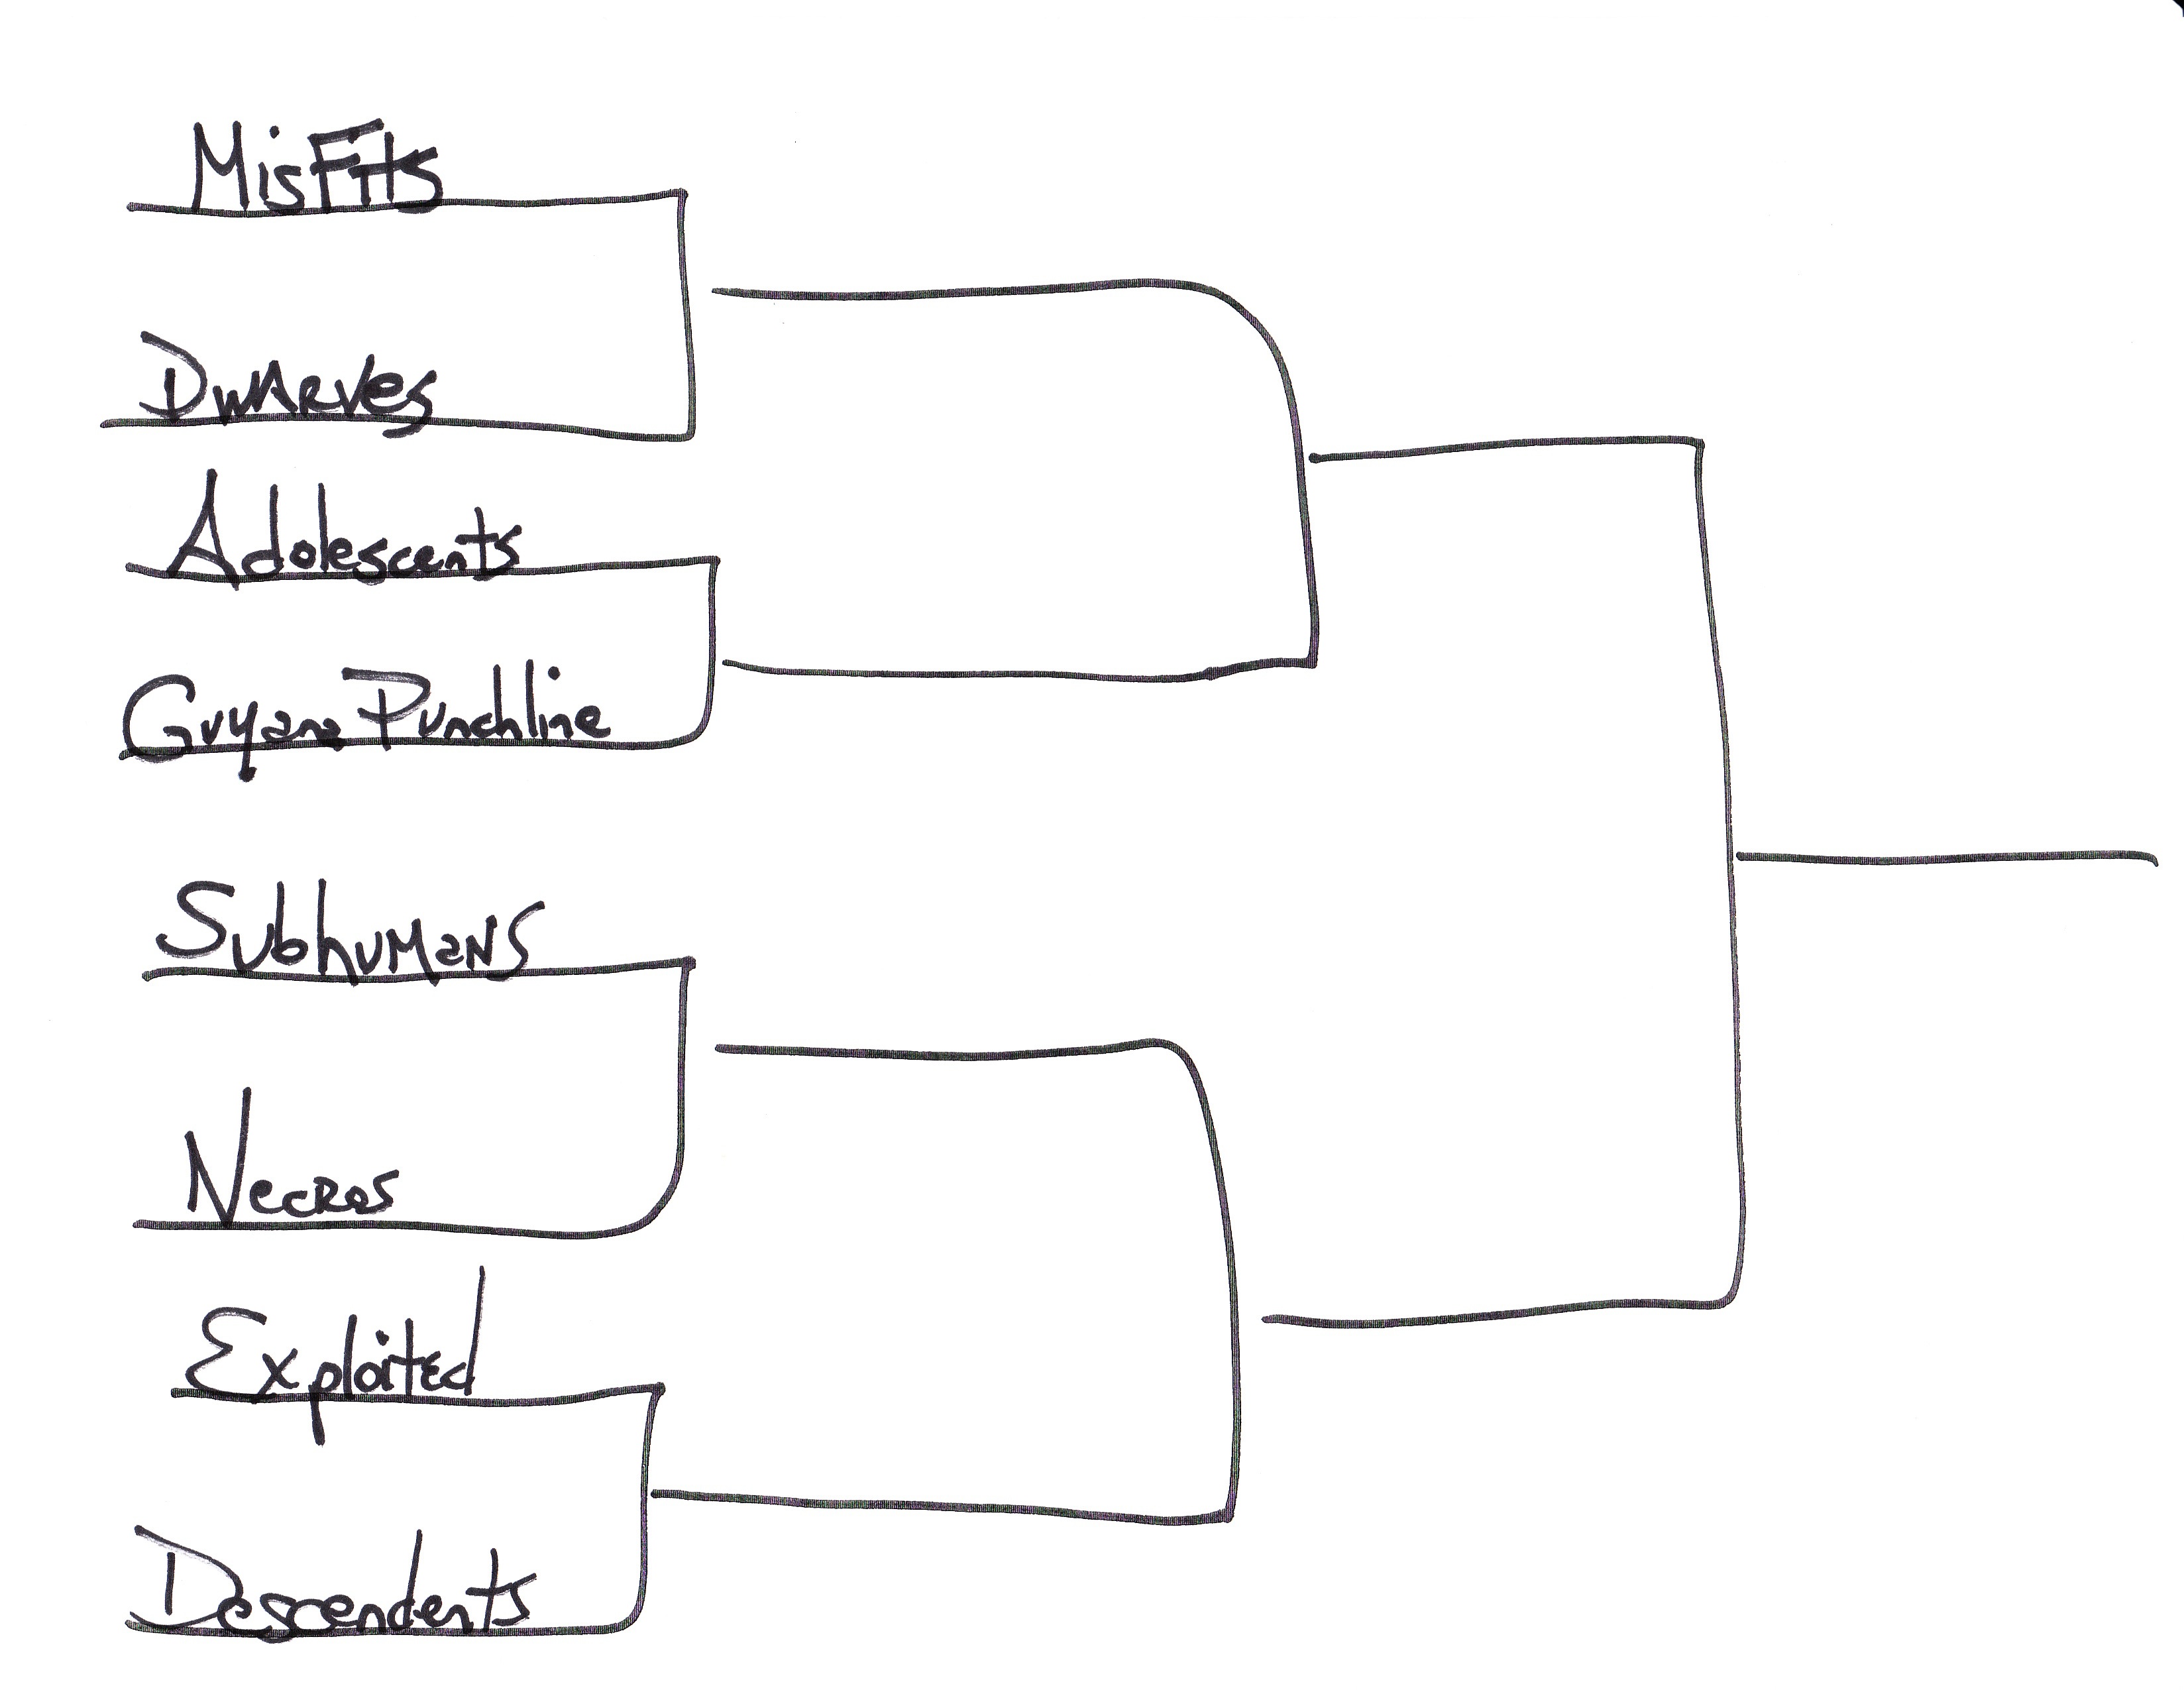 Misfits
Dwarves
Adolescents
Guyana Punchline
Subhumans
Necros
Exploited
Descendents